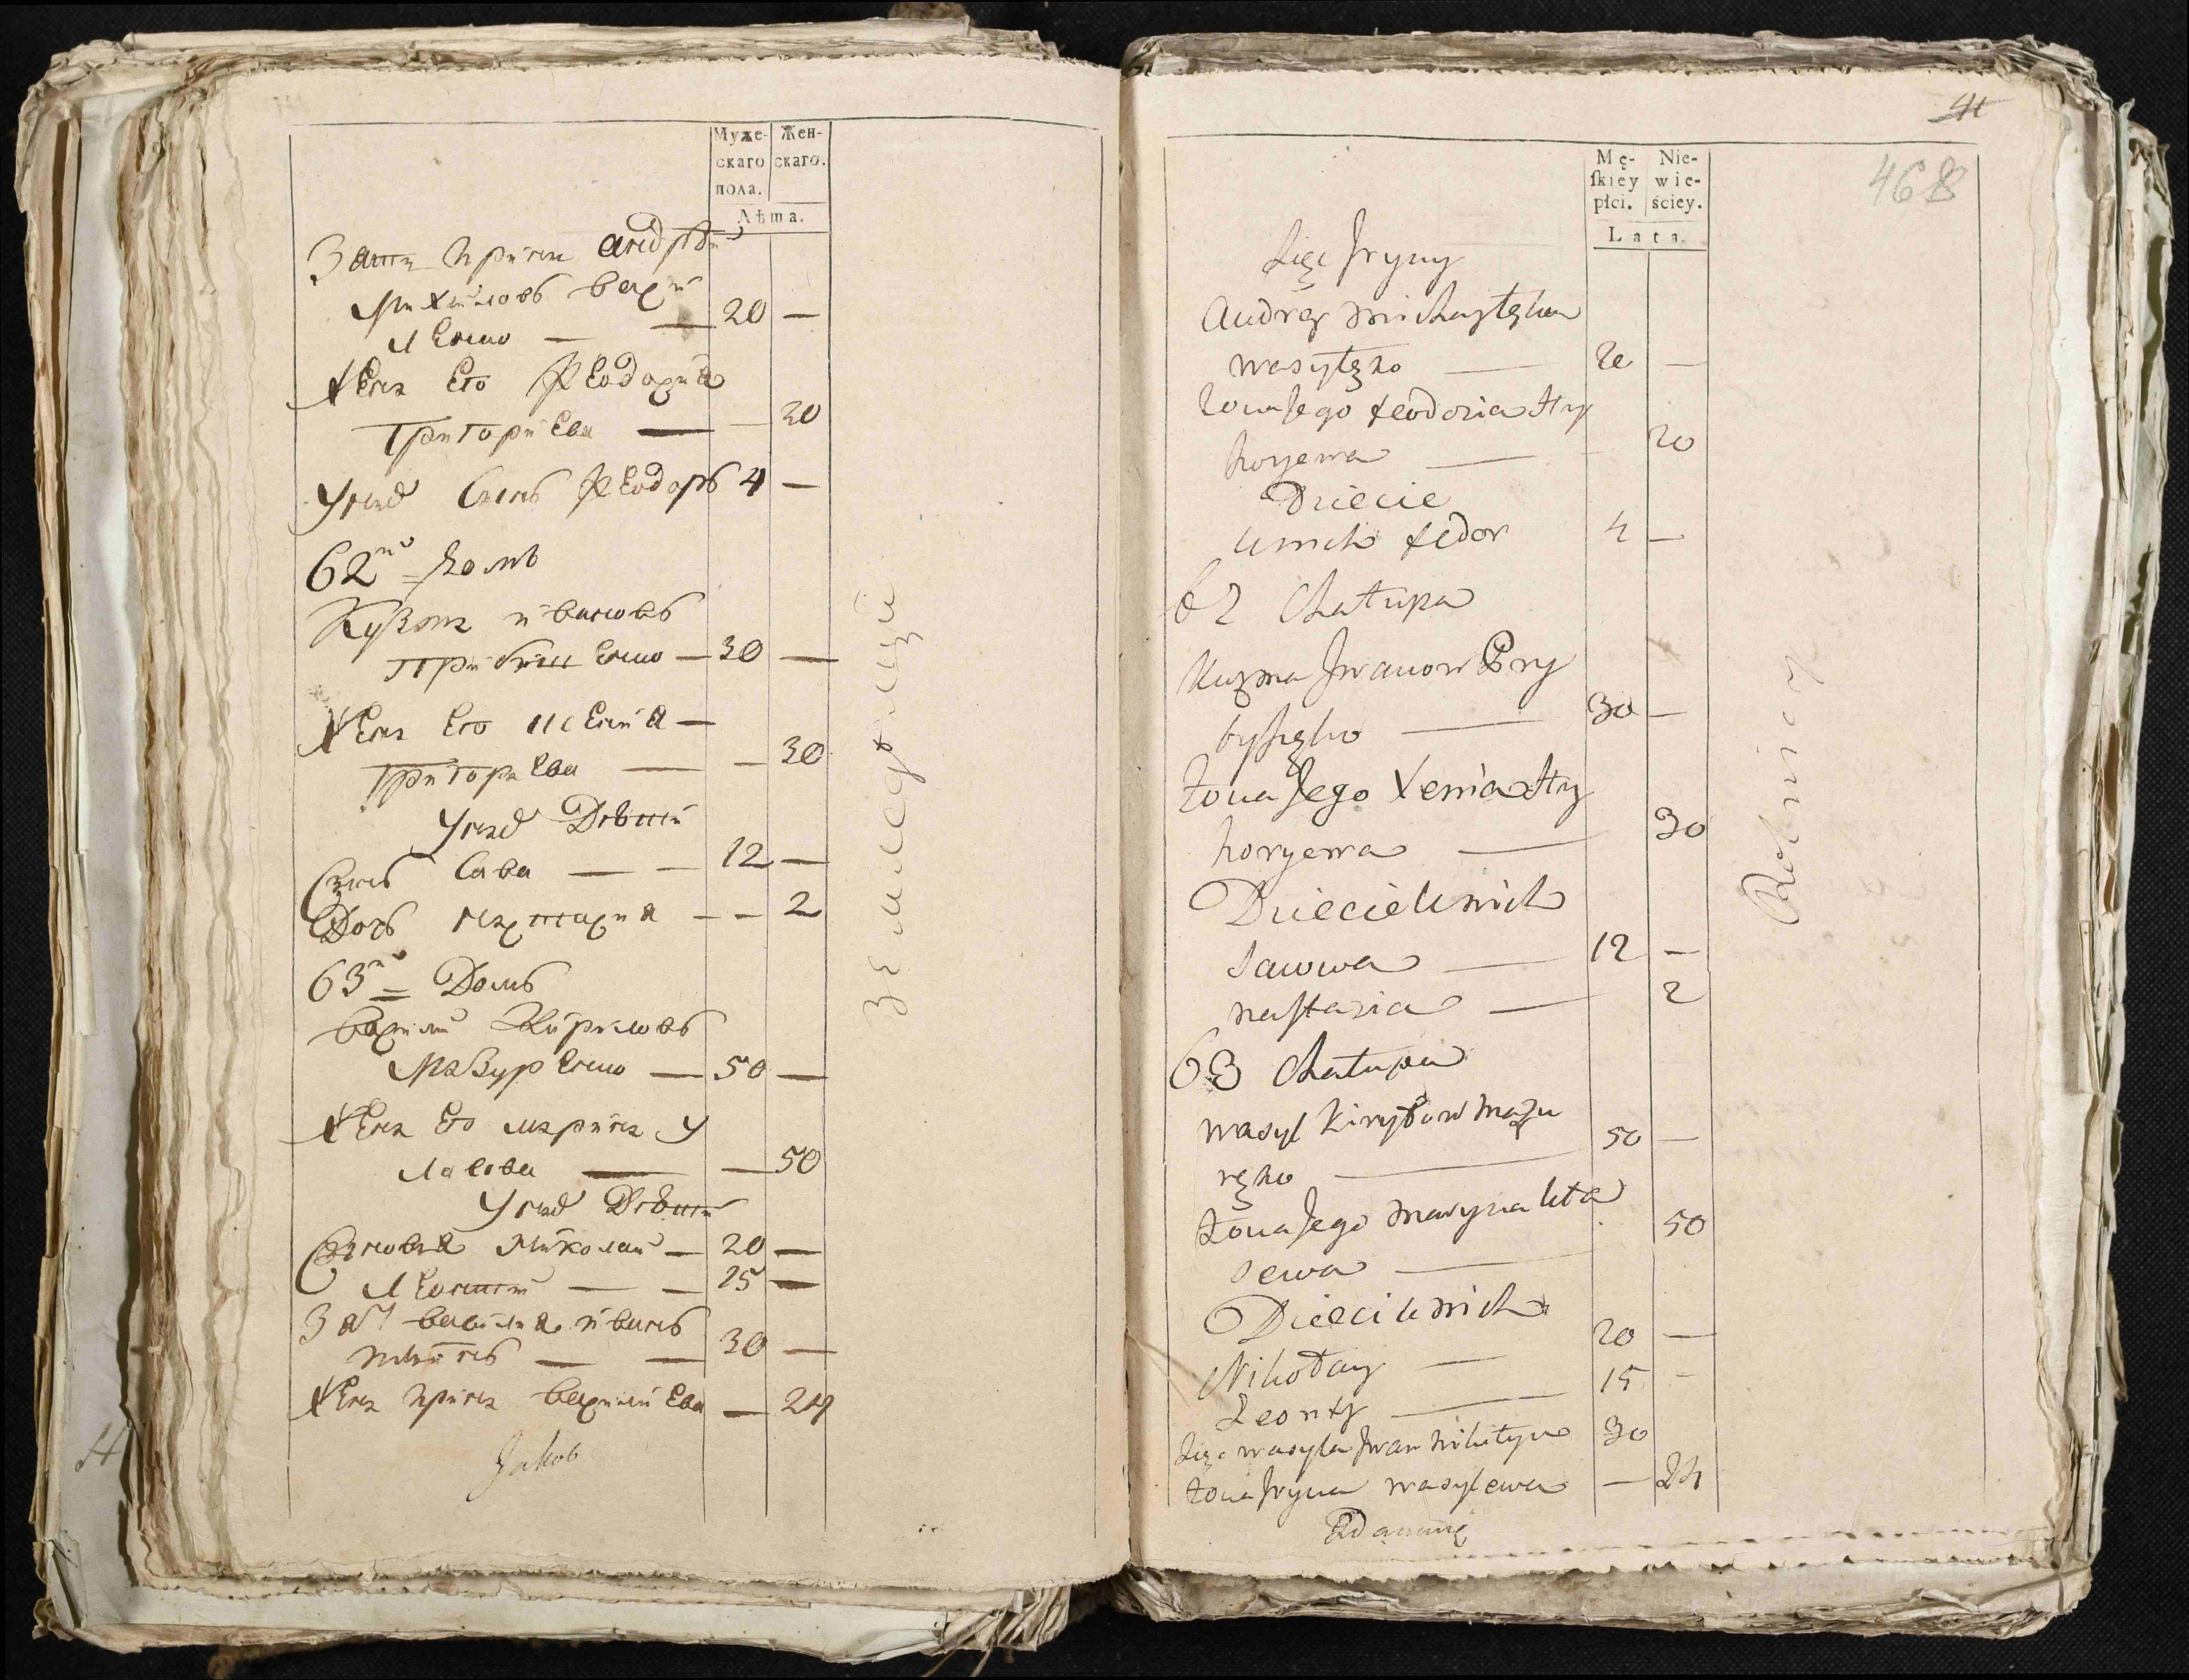 Муже-
скаго
пола.
Жен-
скаго.
Лѣта.
Зять Ирины андрей
Михайловъ васи
ленко — 20 —
Жена Его Феодосия
Григориева — — 20
У нихъ Сынъ Феодоръ 4 —
62й Домъ
Кузма ивановъ
Прибишенко — 30 —
Жена Его Ксения —
Григорьева — — 30
У нихъ Дѣти
Сынъ Сава — — 12 —
Дочь настасия — — 2
63й Домъ
васили Кириловъ
Мазуренко — 50 —
Жена Его марина у
ласова — — 50
У нихъ Дѣти
Сыновья Миколаи — 20 —
Леонти — — 15 —
Зять василя иванъ
— — 30 —
Жена Ирина васииева — 24
Jakob
Земледелци
41
468
Mę-
ſkiey
płci.
Nie-
wie-
ściey.
Lata.
Zięć Jryny
Andrey Michayłęko
Wasylęko — 20 —
Zona Jego Feodozia Hry
horyewa — - 20
Dziecie
u nich Fedor 4 —
62 Chałupa
Kuzma Jwanow Pry
byſzęko — 30 —
Zona Jego Xenia Hry
horyewa — 30
Dziecie u nich
Sawwa — 12 —
Naſtazia — 2
63 Chałupa
Wasyl Kiryłow Mazu
ręko — 50 —
Zona Jego Maryna Uła
sewa — 50
Dzieci u nich
Nikołay — 20 —
Leonty — 15 -
Zięć Wasyla Jwan Nikityn 30
Zona Jryna Wasylewa — 24
Rolnicy